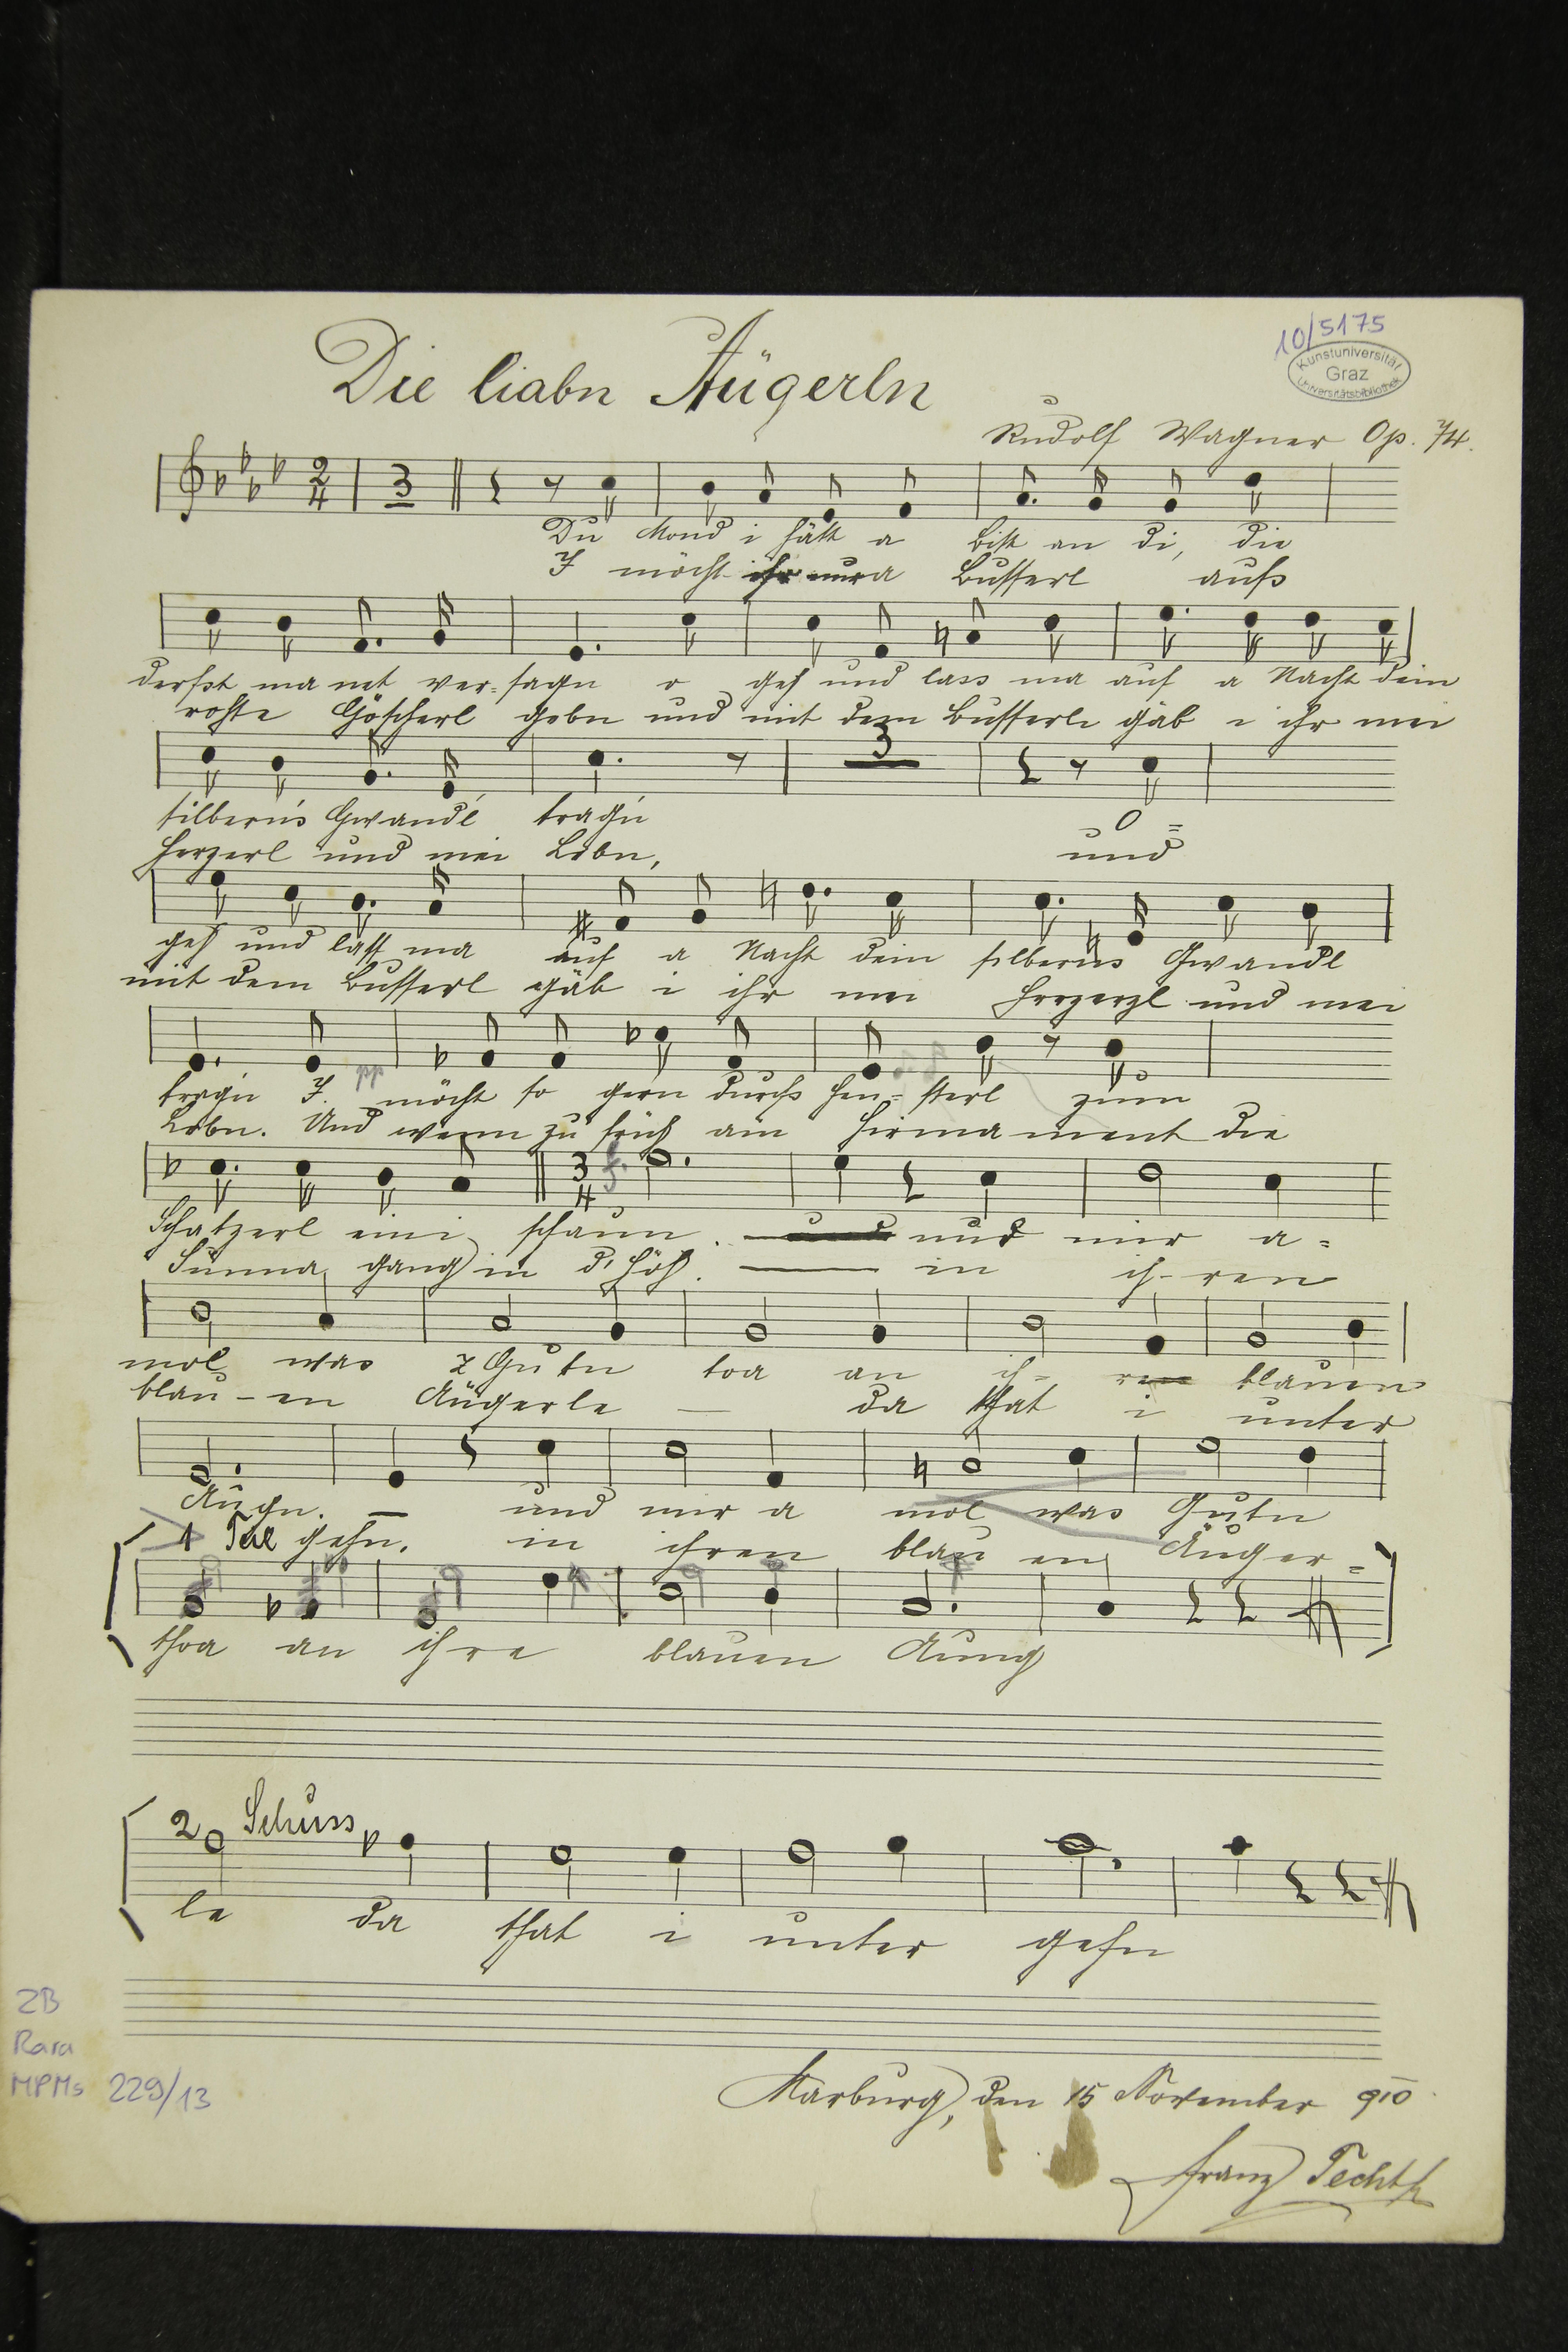 10/5175
Kunstuniversität
Graz
Universitätsbibliothek
Die liabn Äugerln
Rudolf Wagner Op. 74.
2
4
3
Du Mond i hätt a Bitt an di, die
I möcht ihr nur a Busserl aufs
derfst ma net ver-sagn o geh und lass ma auf a Nacht dein
rothe Göscherl gebn und mit dem Busserl gäb i ihr mei
3
silberns Gwandl tragn O=
Herzerl und mei Lebn, und
geh und lass ma auf a Nacht dein silberns Gwandl
mit dem Busserl gäb i ihr mei Herzerl und mei
pp
tragn I. möcht so gern durchs Fen-sterl zum
Lebn. Und wenn zu früh am Firmament die
3
4
Schatzerl eini schaun. und mir a=
Sunna gang in d' Höh. in ih-ren
mol was z Gutn toa an ih- re blauen
blau-en Äugerle — da that i unter
Augn. — und mir a mol was Gutn
1 Teil gehn. in ihren blau en Äuger=
thoa an ihre blauen Aung
2 Schuss
le da that i unter gehn
ZB
Rara
MPMs 229/13
Marburg, den 15 November 910
Franz Techt